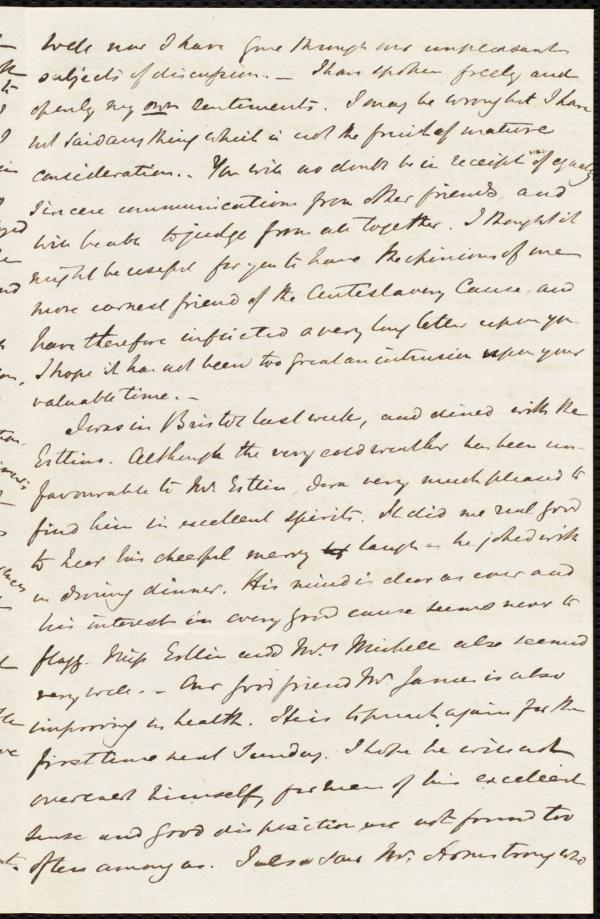 Well now I have gone through our unpleasant
subjects of discussion. — I have spoken freely and
openly my own sentiments. I may be wrong but I have
not said any thing which is not the fruit of mature
consideration. – You will no doubt be in receipt of equally
sincere communications from other friends, and
will be able to judge from all together. I thought it
might be useful for you to have the opinions of one
more earnest friend of the Antislavery Cause, and
have therefore inflicted a very long letter upon you.
I hope it has not been too great an intrusion upon your
valuable time. —
I was in Bristol last week, and dined with the
Estlins. Although the very cold weather has been un-
favourable to Mr. Estlin, I was very much pleased to
find him in excellent spirits. It did me real good
to hear his cheerful merry laugh as he joked with
us during dinner. His mind is clear as ever and
his interest in every good cause seems never to
flagg. Miss Estlin and Mrs Michell also seemed
very well. — Our good friend Mr. James is also
improving in health. He is to preach again for the
first time next Sunday. I hope he will not
overexert himself, for men of his excellent
sense and good disposition are not found too
often among us. I also saw Mr. Armstrong who